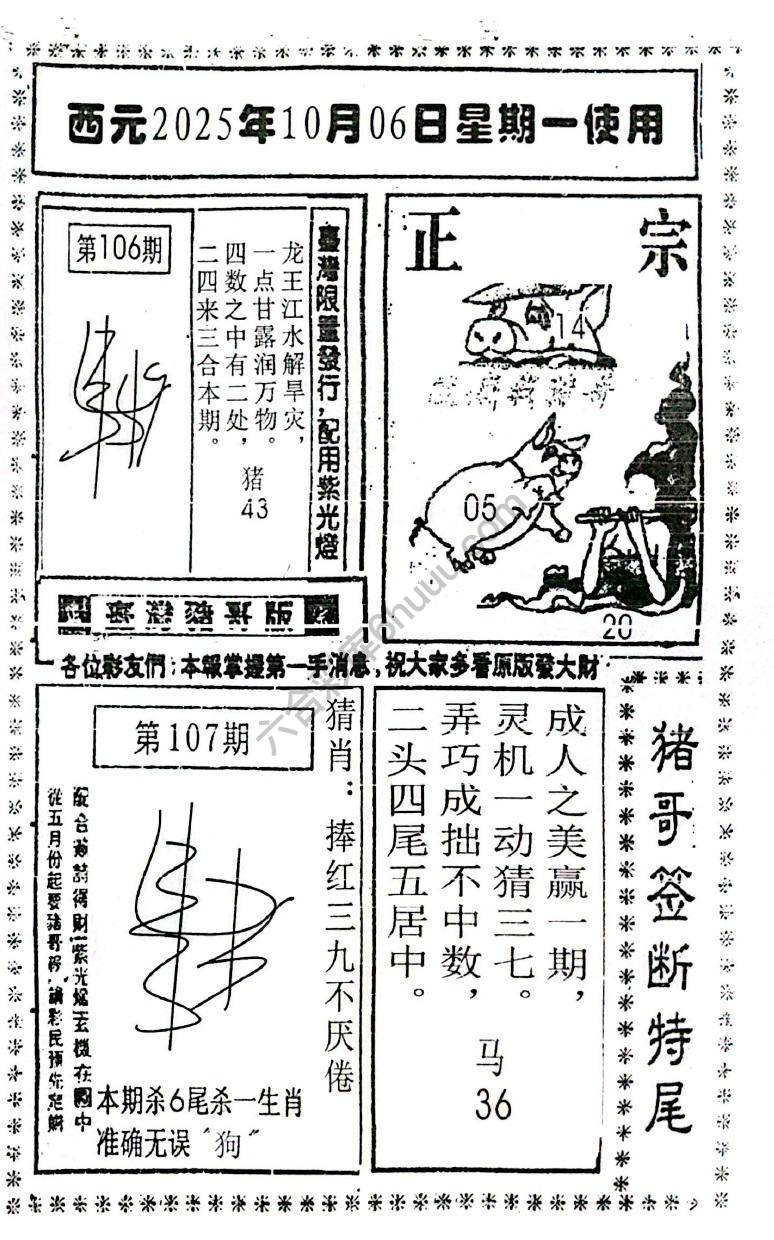 西元2025年10月06日星期一使用
第106期
臺灣限量發行，配用紫光燈
龙王江水解旱灾，
一点甘露润万物。
四数之中有二处，
二四来三合本期。
猪
43
正宗
14
05
20
各位彩友們：本報掌握第一手消息，祝大家多看原版發大財
第107期
猜肖：捧红三九不厌倦
紫光燈玄機在圖中
從五月份起要豬哥
本期杀6尾杀一生肖
准确无误“狗”
成人之美赢一期，
灵机一动猜三七。
弄巧成拙不中数，
二头四尾五居中。
马
36
猪哥签断特尾
六合彩库6huuu.com